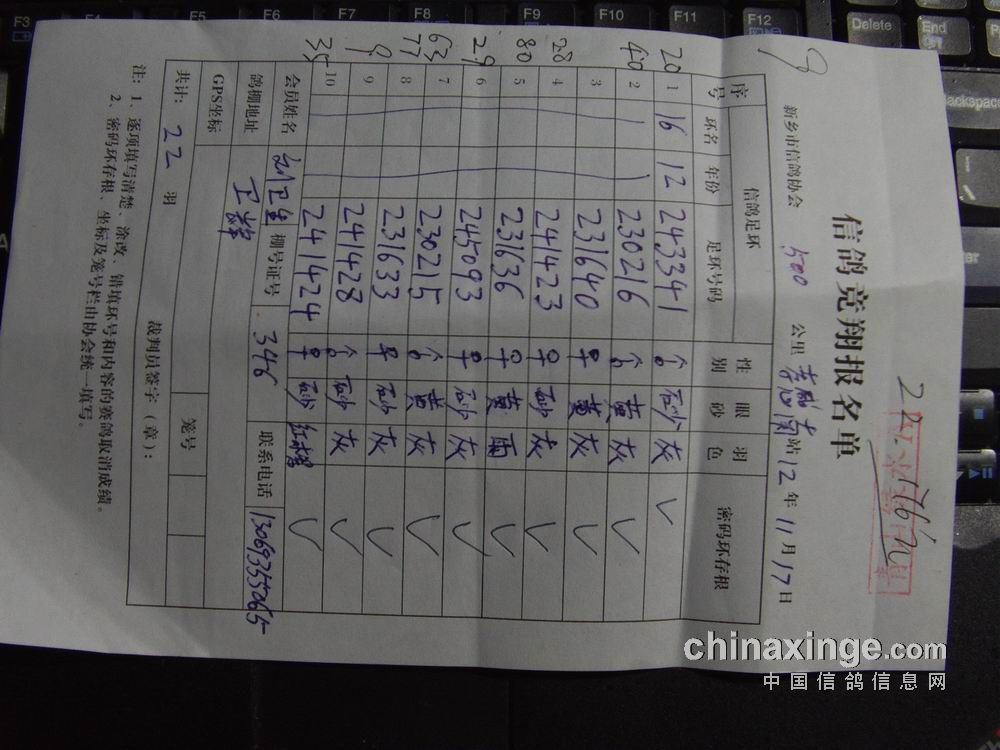 信鸽竞翔报名单
22 176元
9
新乡市信鸽协会 500 公里 孝感 站 12 年 11 月 17 日
序号 信鸽足环 性别 眼砂 羽色 密码环存根
环名 年份 足环号码
20 1 16 12 243341 合 砂 灰 √
40 2 230216 合 黄 灰 √
3 231640 早 黄 灰 √
28 4 241423 早 砂 灰 √
80 5 231636 早 黄 雨 √
29 6 245093 早 砂 灰 √
63 7 230215 合 黄 灰 √
77 8 231633 早 砂 灰 √
9 9 241428 合 砂 灰 √
35 10 241424 早 砂 红 √
会员姓名 卫 棚号证号 346 联系电话 13069355065
鸽棚地址 卫辉
GPS坐标 笼号
共计: 22 羽 裁判员签字(章):
注:1、逐项填写清楚、涂改、错填环号和内容的赛鸽取消成绩。
2、密码环存根、坐标及笼号栏由协会统一填写。
chinaxinge.com
中国信鸽信息网
F3
F4
F5
F6
F7
F8
F9
F10
F11
F12
Delete
End
Backspace